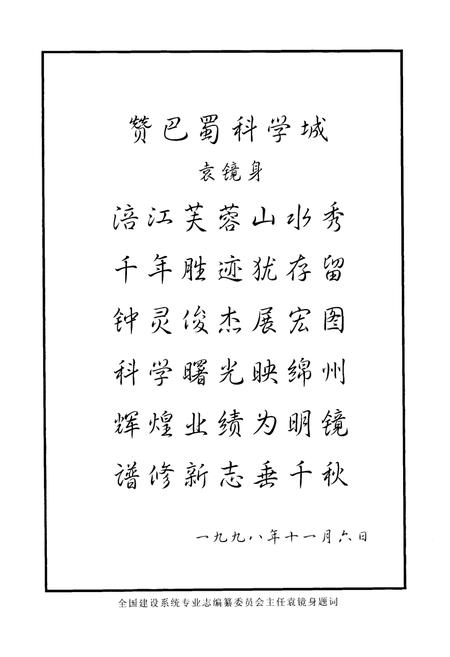 赞巴蜀科学城
袁镜身
涪江芙蓉山水秀
千年胜迹犹存留
钟灵俊杰展宏图
科学曙光映绵州
辉煌业绩为明镜
谱修新志垂千秋
一九九八年十一月六日
全国建设系统专业志编纂委员会主任袁镜身题词